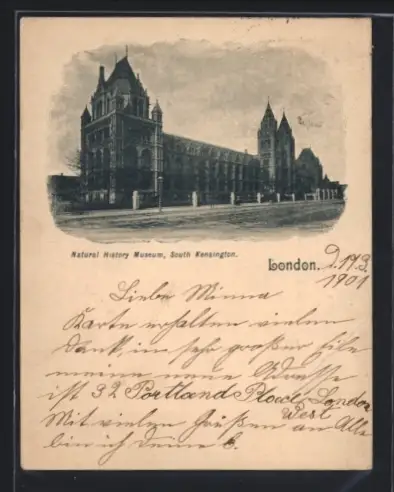 Natural History Museum, South Kensington.
London. D. 19.3.
1901
Liebe Minna
Karte erhalten vielen
dank, in sehr großer Eile
meine neue Adresse
ist 32 Portland Place, London
West
Mit vielen Grüßen an Alle
bin ich deine E.